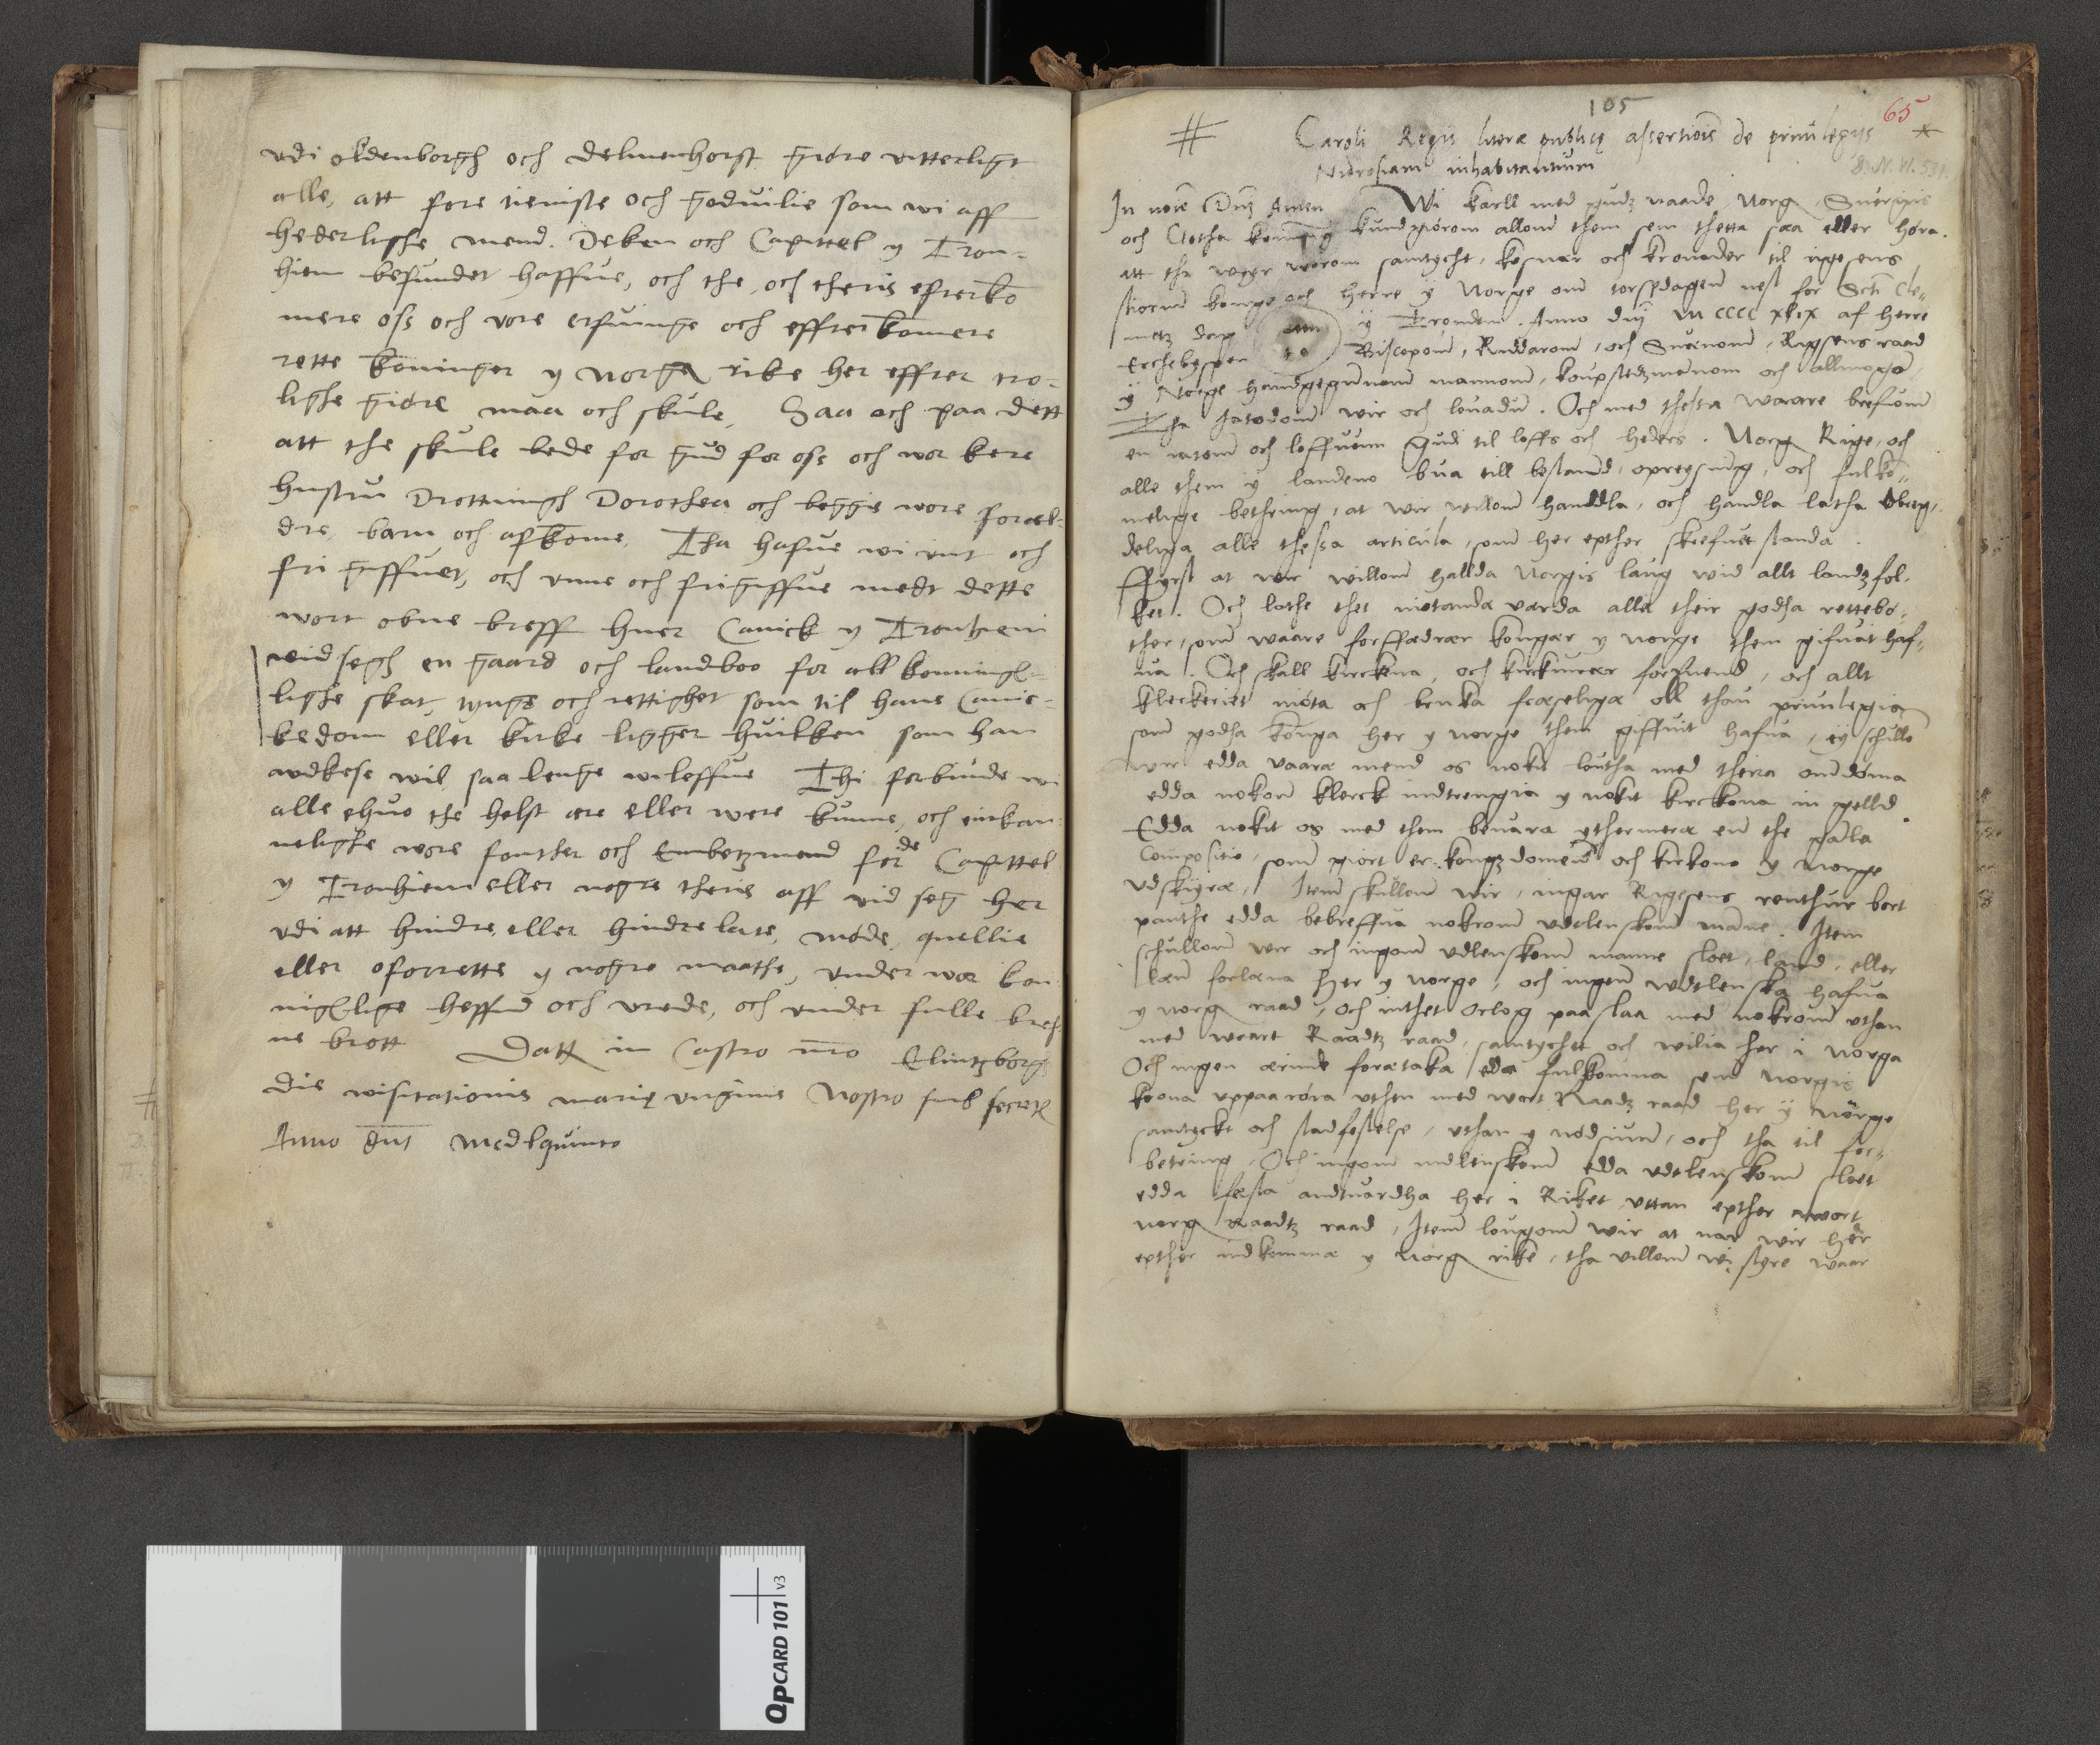 vdi oldenborgh och delmenhorst giøre vitterligt
alle, att fore tieniste och godvilie som wi aff
hederlighe mend. Deken och Capittel y Tron-
hiem befundet haffue, och the, och theris efterko
mere oss och vore erfuinge och effterkomere
rette koninger y Norge rike her effter tro-
lighe giøre maa och skule, Saa och paa dett
att the skule bede for gud for oss och wor kere
hustru Drottningh Dorothea och beggis wore foræl-
dre, barn och afkome, Tha hafue wi vnt och
fri giffuet, och vnne och frigiffue medt dette
wort obne breff huer Canick y Trontheim
vid segh en gaard och landboo for all konningh-
lighe skat, tynge och rettighet som til hans Canic-
kedom eller kirke ligger huilken som han
vdkese wil, saa lenge wi leffue Thi forbiude wi
alle ehuo the helst ere eller were kunne, och einkan-
nelighe wore fouther och Embetzmend for de Capittel
y Tronhiem eller nogre theris aff vid seg her
vdi att hindre, eller hindre late, møde, quellie
eller oforrette y nogre maathe, vnder wor kon
nighlige heffnd och vrede, och vnder fulle bref
ne brott Datt in Castro nro Elsintzborg
die visitationis marię virginis Nostro sub secret
Anno dni mcdlquinto
105
65
Caroli Regis literæ publicę assertiois de priuilegijs
Nidrosiam inhabitantium
D. N. VI. 531.
In noie Dni Amen Wi karll med gudz naade, Norg, Suerigis
och Gotha konung kundgiørom allom them sem thetta saa eller høra.
att tha wiir worom samtycht, kesnar och kronader til rigesens
stiorna konge och herre y Norge om torsdagen nest for Scti Cle-
metz dag y Trondem. Anno dnj MCCCC xlix af herre
Erchebyspen Biscopom, Riddarom, och Suenom, Rigsens raad
y Norge handgegnnom mannom, koupstedzmennom och allmoge,
Tha Jatodom wir och louadum. Och med thetta waare brefuom
en iatom och loffuom Gudi til loffs och heders. Norg Rige, och
alle them y landeno bua till bestand, opreysning, och fulko-
melige bething, at wir willom handdla, och handla latha vbryg-
deliga alle thessa articula, som her epther skrefuet standa.
Ffyrst at wir willom hallda Norgis laug wid allt landz fol-
ket. Och lathe thet niotanda varda alla their godha rettebø-
ther, som waare forffædrar kongar y norge them gifuit haf-
ua. Och skall kirckena, och kirkunnar formend, och allt
kleckeriet niota och bruka fræseliga all thau priuilegia
som godha konga her y norge them giffuit hafua, ey schulle
wir edda vaara mend os nokit loutha med theira omdøma
edda nokon klerck indtrengia y nokit kirckona in gelld.
Edda nokit os med them beuara ythermera en the gamla
Compositio, som giort er kongzdomen och kirkono y Norge
vdskyra, Item skullom wir, ingar Rigesens renthur bort
panthe edda bebreffua nokrom vdelenskom manne. Item
schullom wir och ingom vdlenskom manne slott, land, eller
læn forlæna her y norge, och ingen wdtlenska hafua
y norg raad, Och inthet orlog paa slaa med nokrom vthan
med waart Raadtz raad, samtycht och wilia her i Norga
Och ingen ærinde foretaka edda fulkomma sem Norgis
krona uppaarøra vthen med wort Raadz raad her y Norge
samtyckt och stadfestelse, vthan y nødsiun, och tha til for-
betring. Och ingom indlenskom edda vdtlenskom slott
edda festa andtuardha her i Riket vttan epther wort
norg Raadtz raad, Item lougom wir at nar wir her
epther indkomma y Norg rike, tha villom wi styre waar
QpCARD 101 v3